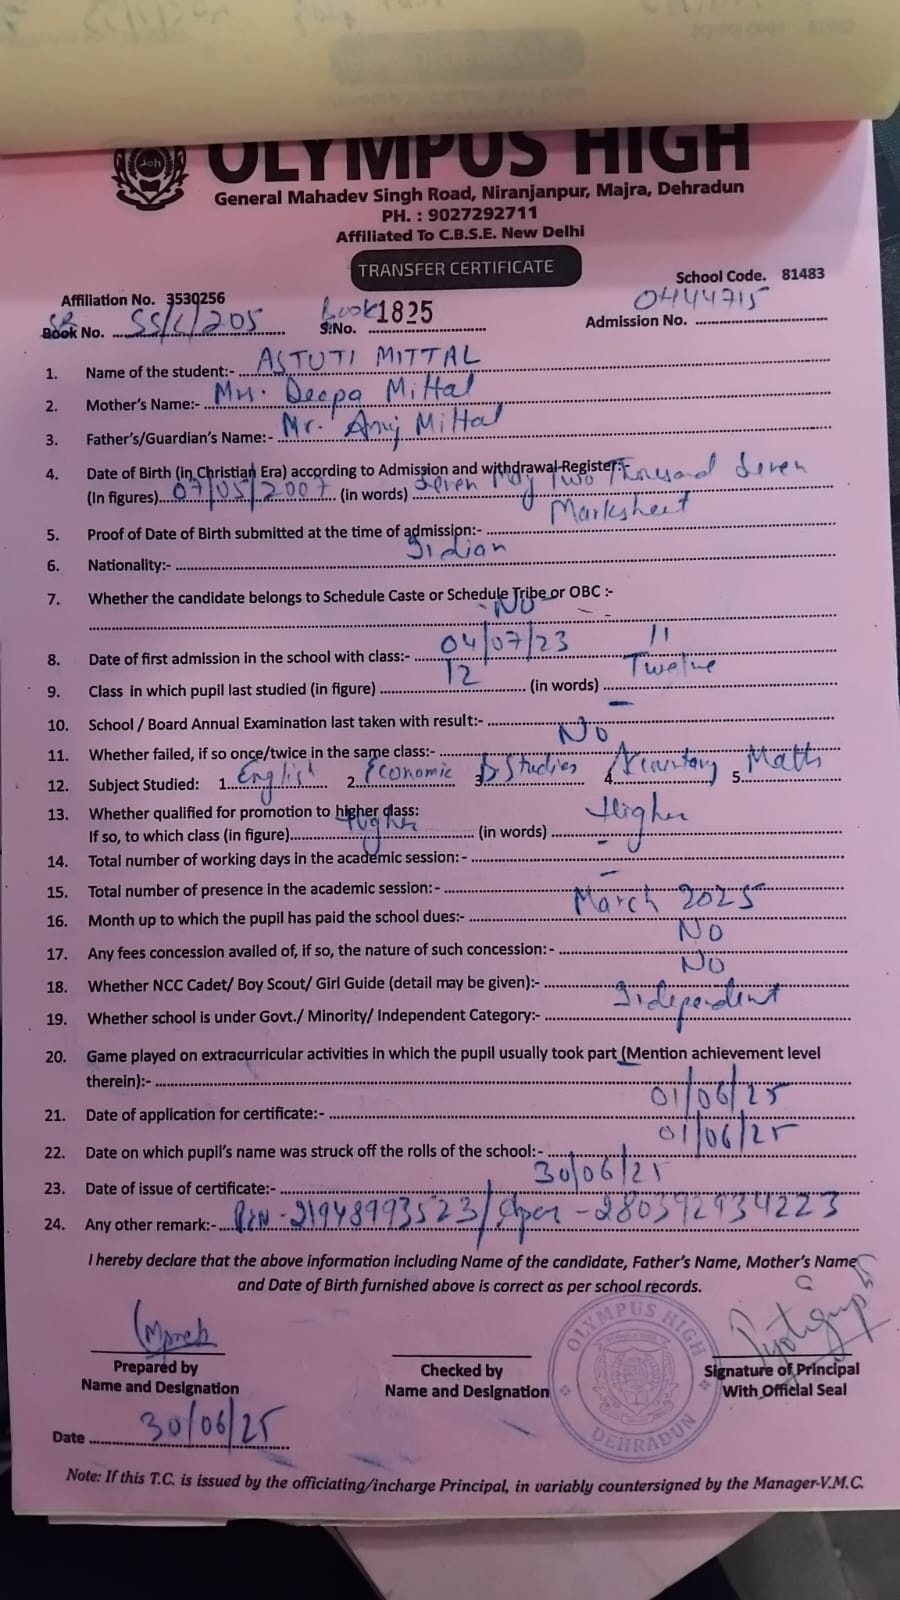 OLYMPUS HIGH
General Mahadev Singh Road, Niranjanpur, Majra, Dehradun
PH. : 9027292711
Affiliated To C.B.S.E. New Delhi
TRANSFER CERTIFICATE
School Code. 81483
Affiliation No. 3530256
SR Book No. SS/L/205 Book S.No. 1825 Admission No. 0444715
1. Name of the student:- ASTUTI MITTAL
2. Mother's Name:- Mrs. Deepa Mittal
3. Father's/Guardian's Name:- Mr. Anuj Mittal
4. Date of Birth (in Christian Era) according to Admission and withdrawal Register:-
(In figures) 07/05/2007 (in words) Seven May Two Thousand Seven
5. Proof of Date of Birth submitted at the time of admission:- Marksheet
6. Nationality:- Indian
7. Whether the candidate belongs to Schedule Caste or Schedule Tribe or OBC :-
- No -
8. Date of first admission in the school with class:- 04/07/23 11
9. Class in which pupil last studied (in figure) 12 (in words) Twelve
10. School / Board Annual Examination last taken with result:- —
11. Whether failed, if so once/twice in the same class:- No
12. Subject Studied: 1. English 2. Economic 3. B Studies 4. 5. Math
13. Whether qualified for promotion to higher class:
If so, to which class (in figure) Higher (in words) Higher
14. Total number of working days in the academic session:- —
15. Total number of presence in the academic session:- —
16. Month up to which the pupil has paid the school dues:- March 2025
17. Any fees concession availed of, if so, the nature of such concession:- No
18. Whether NCC Cadet/ Boy Scout/ Girl Guide (detail may be given):- No
19. Whether school is under Govt./ Minority/ Independent Category:- Independent
20. Game played on extracurricular activities in which the pupil usually took part (Mention achievement level
therein):-
21. Date of application for certificate:- 01/06/25
22. Date on which pupil's name was struck off the rolls of the school:- 01/06/25
23. Date of issue of certificate:- 30/06/25
24. Any other remark:- PEN - 21948993523/Apar - 280392934223
I hereby declare that the above information including Name of the candidate, Father's Name, Mother's Name
and Date of Birth furnished above is correct as per school records.
OLYMPUS HIGH
DEHRADUN
Prepared by Checked by Signature of Principal
Name and Designation Name and Designation With Official Seal
Date 30/06/25
Note: If this T.C. is issued by the officiating/incharge Principal, in variably countersigned by the Manager-V.M.C.